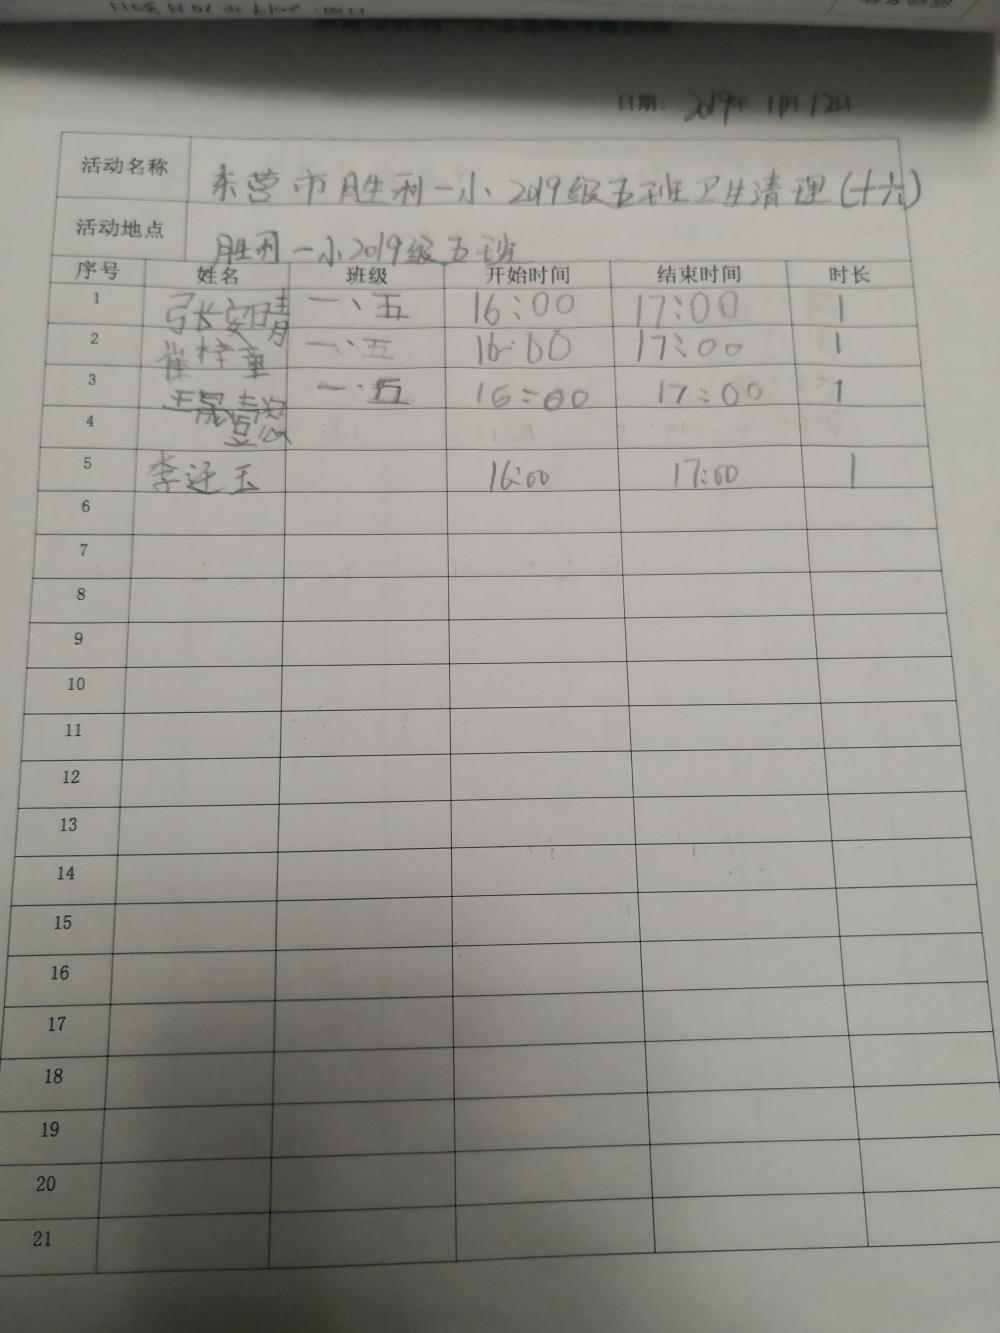 日期: 2019年 11月12日
活动名称 东营市胜利一小2019级五班卫生清理(十六)
活动地点 胜利一小2019级五班
序号 姓名 班级 开始时间 结束时间 时长
1 张 一、五 16:00 17:00 1
2 崔梓童 一、五 16:00 17:00 1
3 王 一、五 16:00 17:00 1
4
5 李 玉 16:00 17:00 1
6
7
8
9
10
11
12
13
14
15
16
17
18
19
20
21